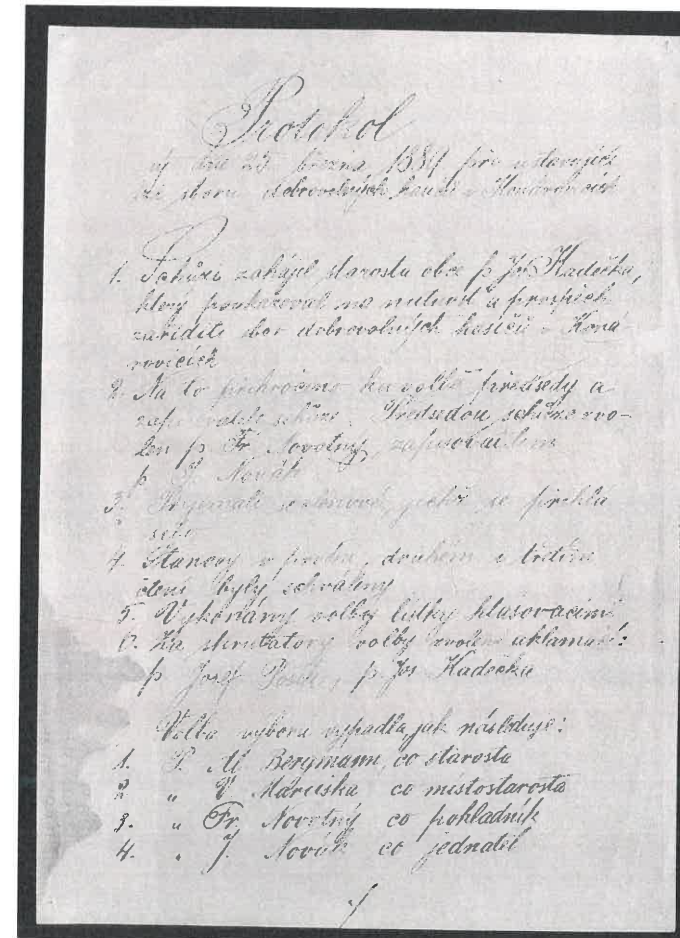 Protokol
dne 23. března 1889 při ustavující
sboru dobrovolných hasičů v Konárovicích
1. Schůzi zahájil starosta obce p. Jos. Kadečka,
který poukazoval na nutnost a prospěch
zaříditi sbor dobrovolných hasičů v Koná-
rovicích
2. Na to přikročeno ku volbě předsedy a
zapisovatele schůze. Předsedou schůze zvo-
len p. Fr. Novotný, zapisovatelem
p. J. Novák
3. členové, jichž se přihlá
silo
4. Stanovy v prvém, druhém i třetím
čtení byly schváleny
5. Vykonány volby lístky hlasovacími
6. Za skrutátory volby zvoleni aklamací:
p. Josef p. Jos Kadečka
Volba výboru vypadla, jak následuje:
1. P. Al. Bergmann, co starosta
2 " V. co místostarosta
3. " Fr. Novotný co pokladník
4. " J. Novák co jednatel